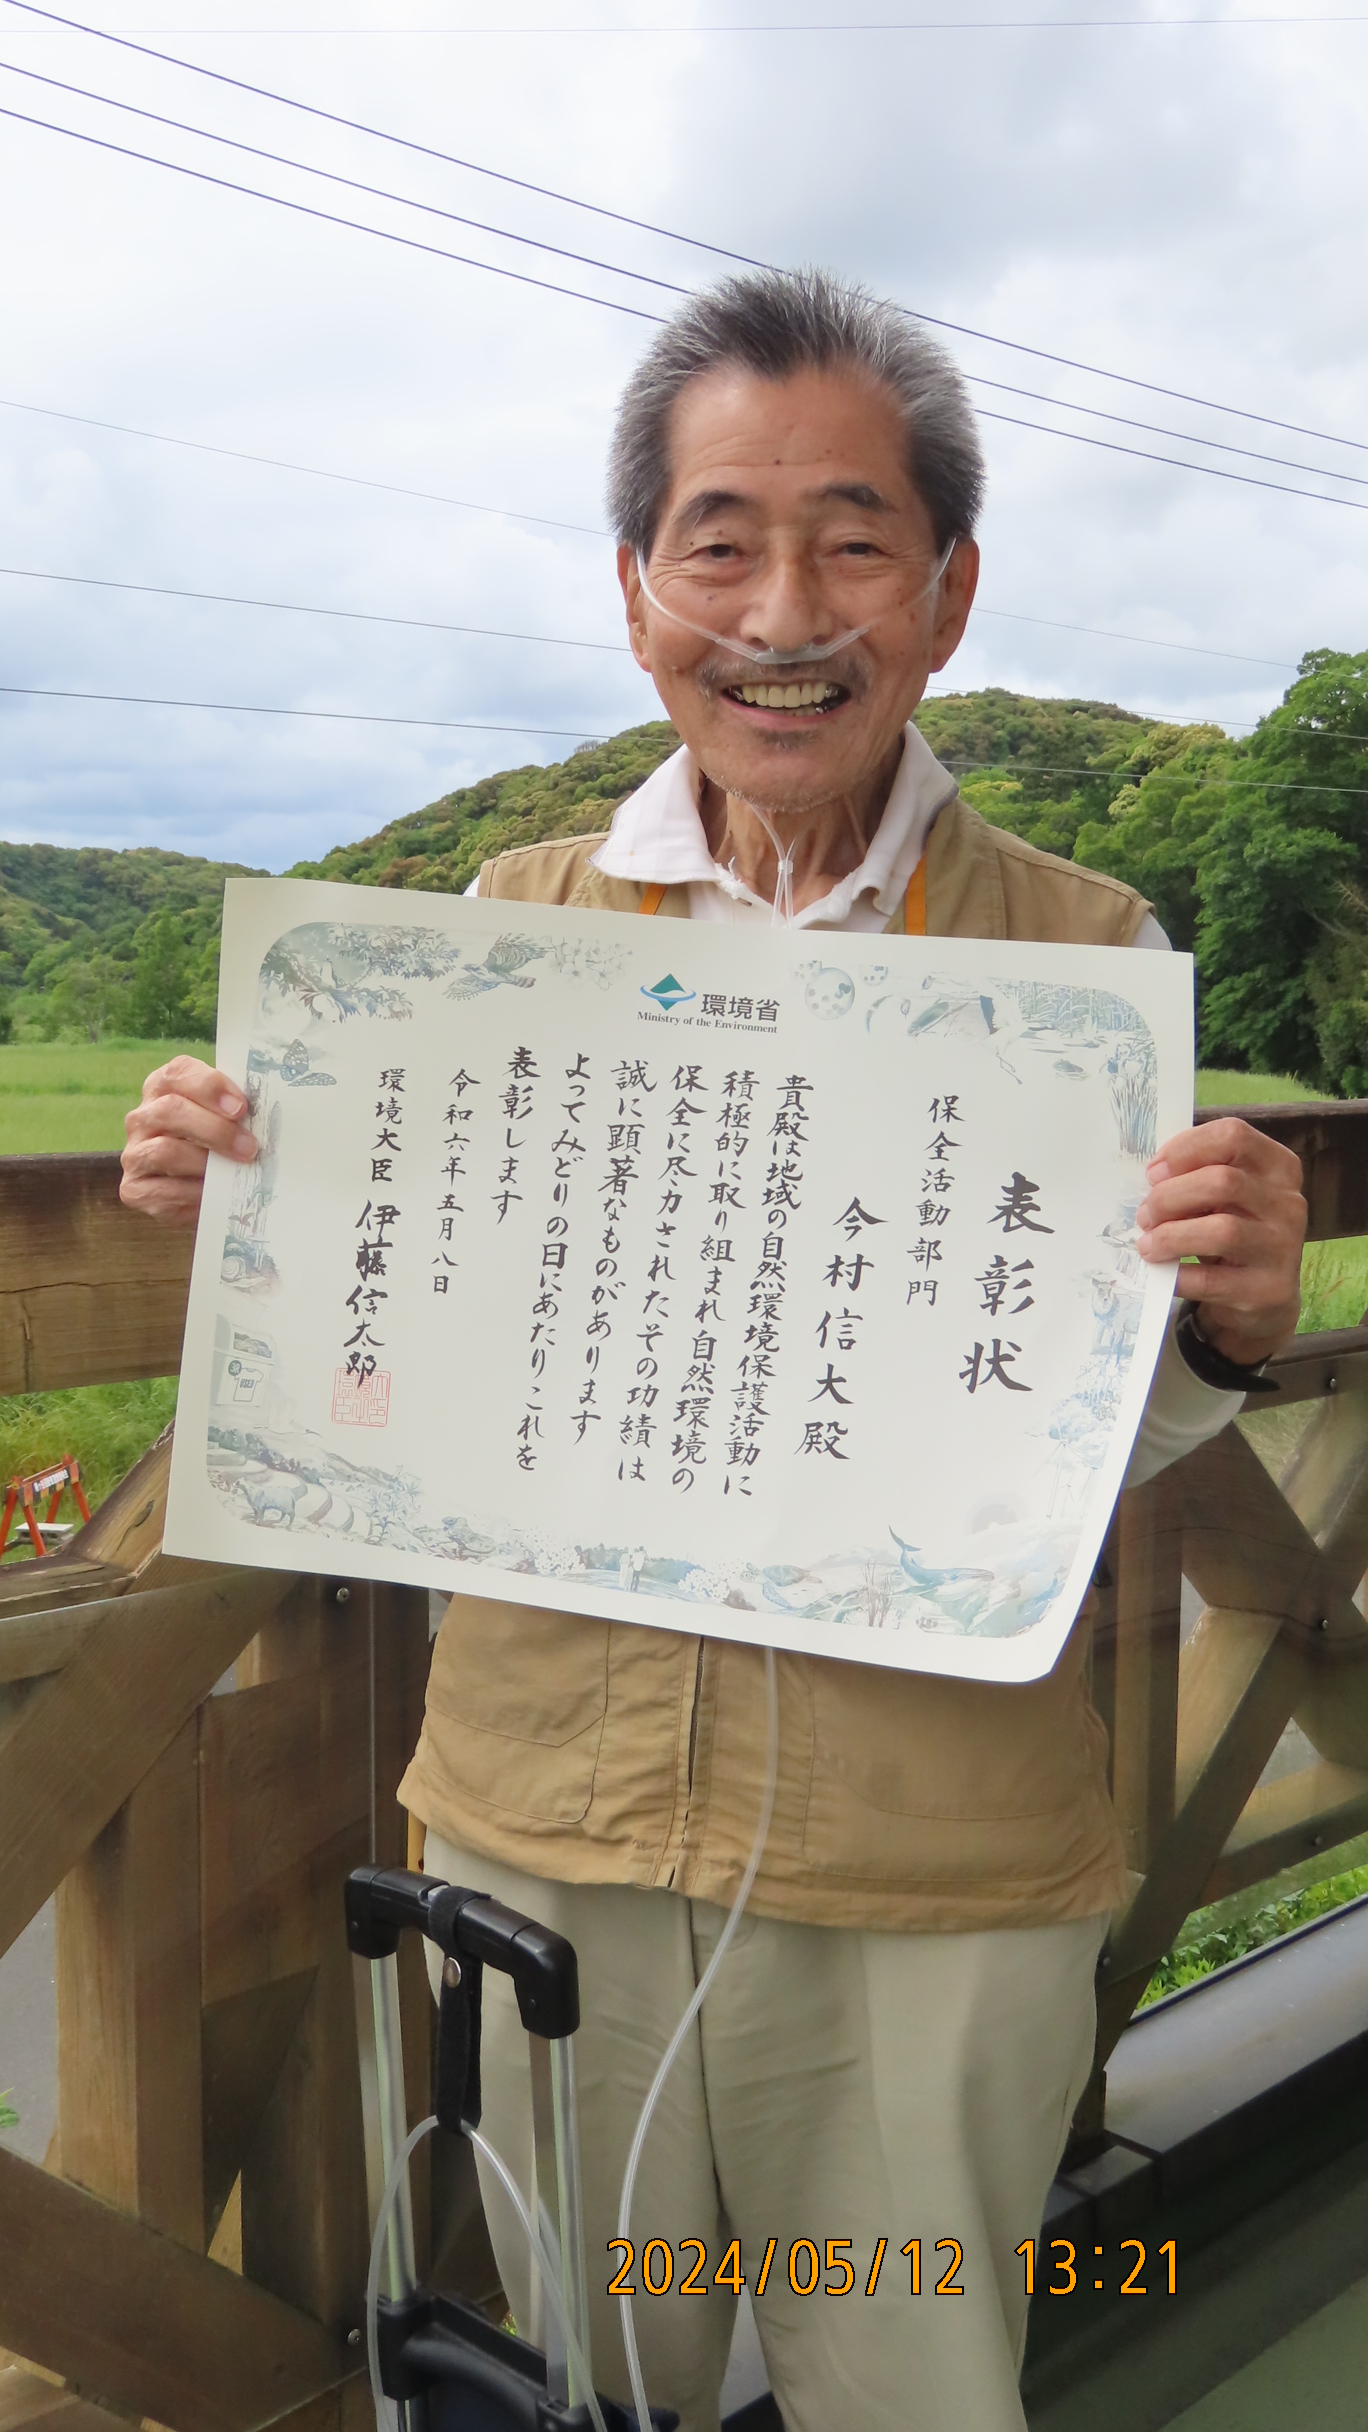 環境省
Ministry of the Environment
表彰状
保全活動部門
今村信大殿
貴殿は地域の自然環境保護活動に
積極的に取り組まれ自然環境の
保全に尽力されたその功績は
誠に顕著なものがあります
よってみどりの日にあたりこれを
表彰します
令和六年五月八日
環境大臣 伊藤信太郎
2024/05/12 13:21